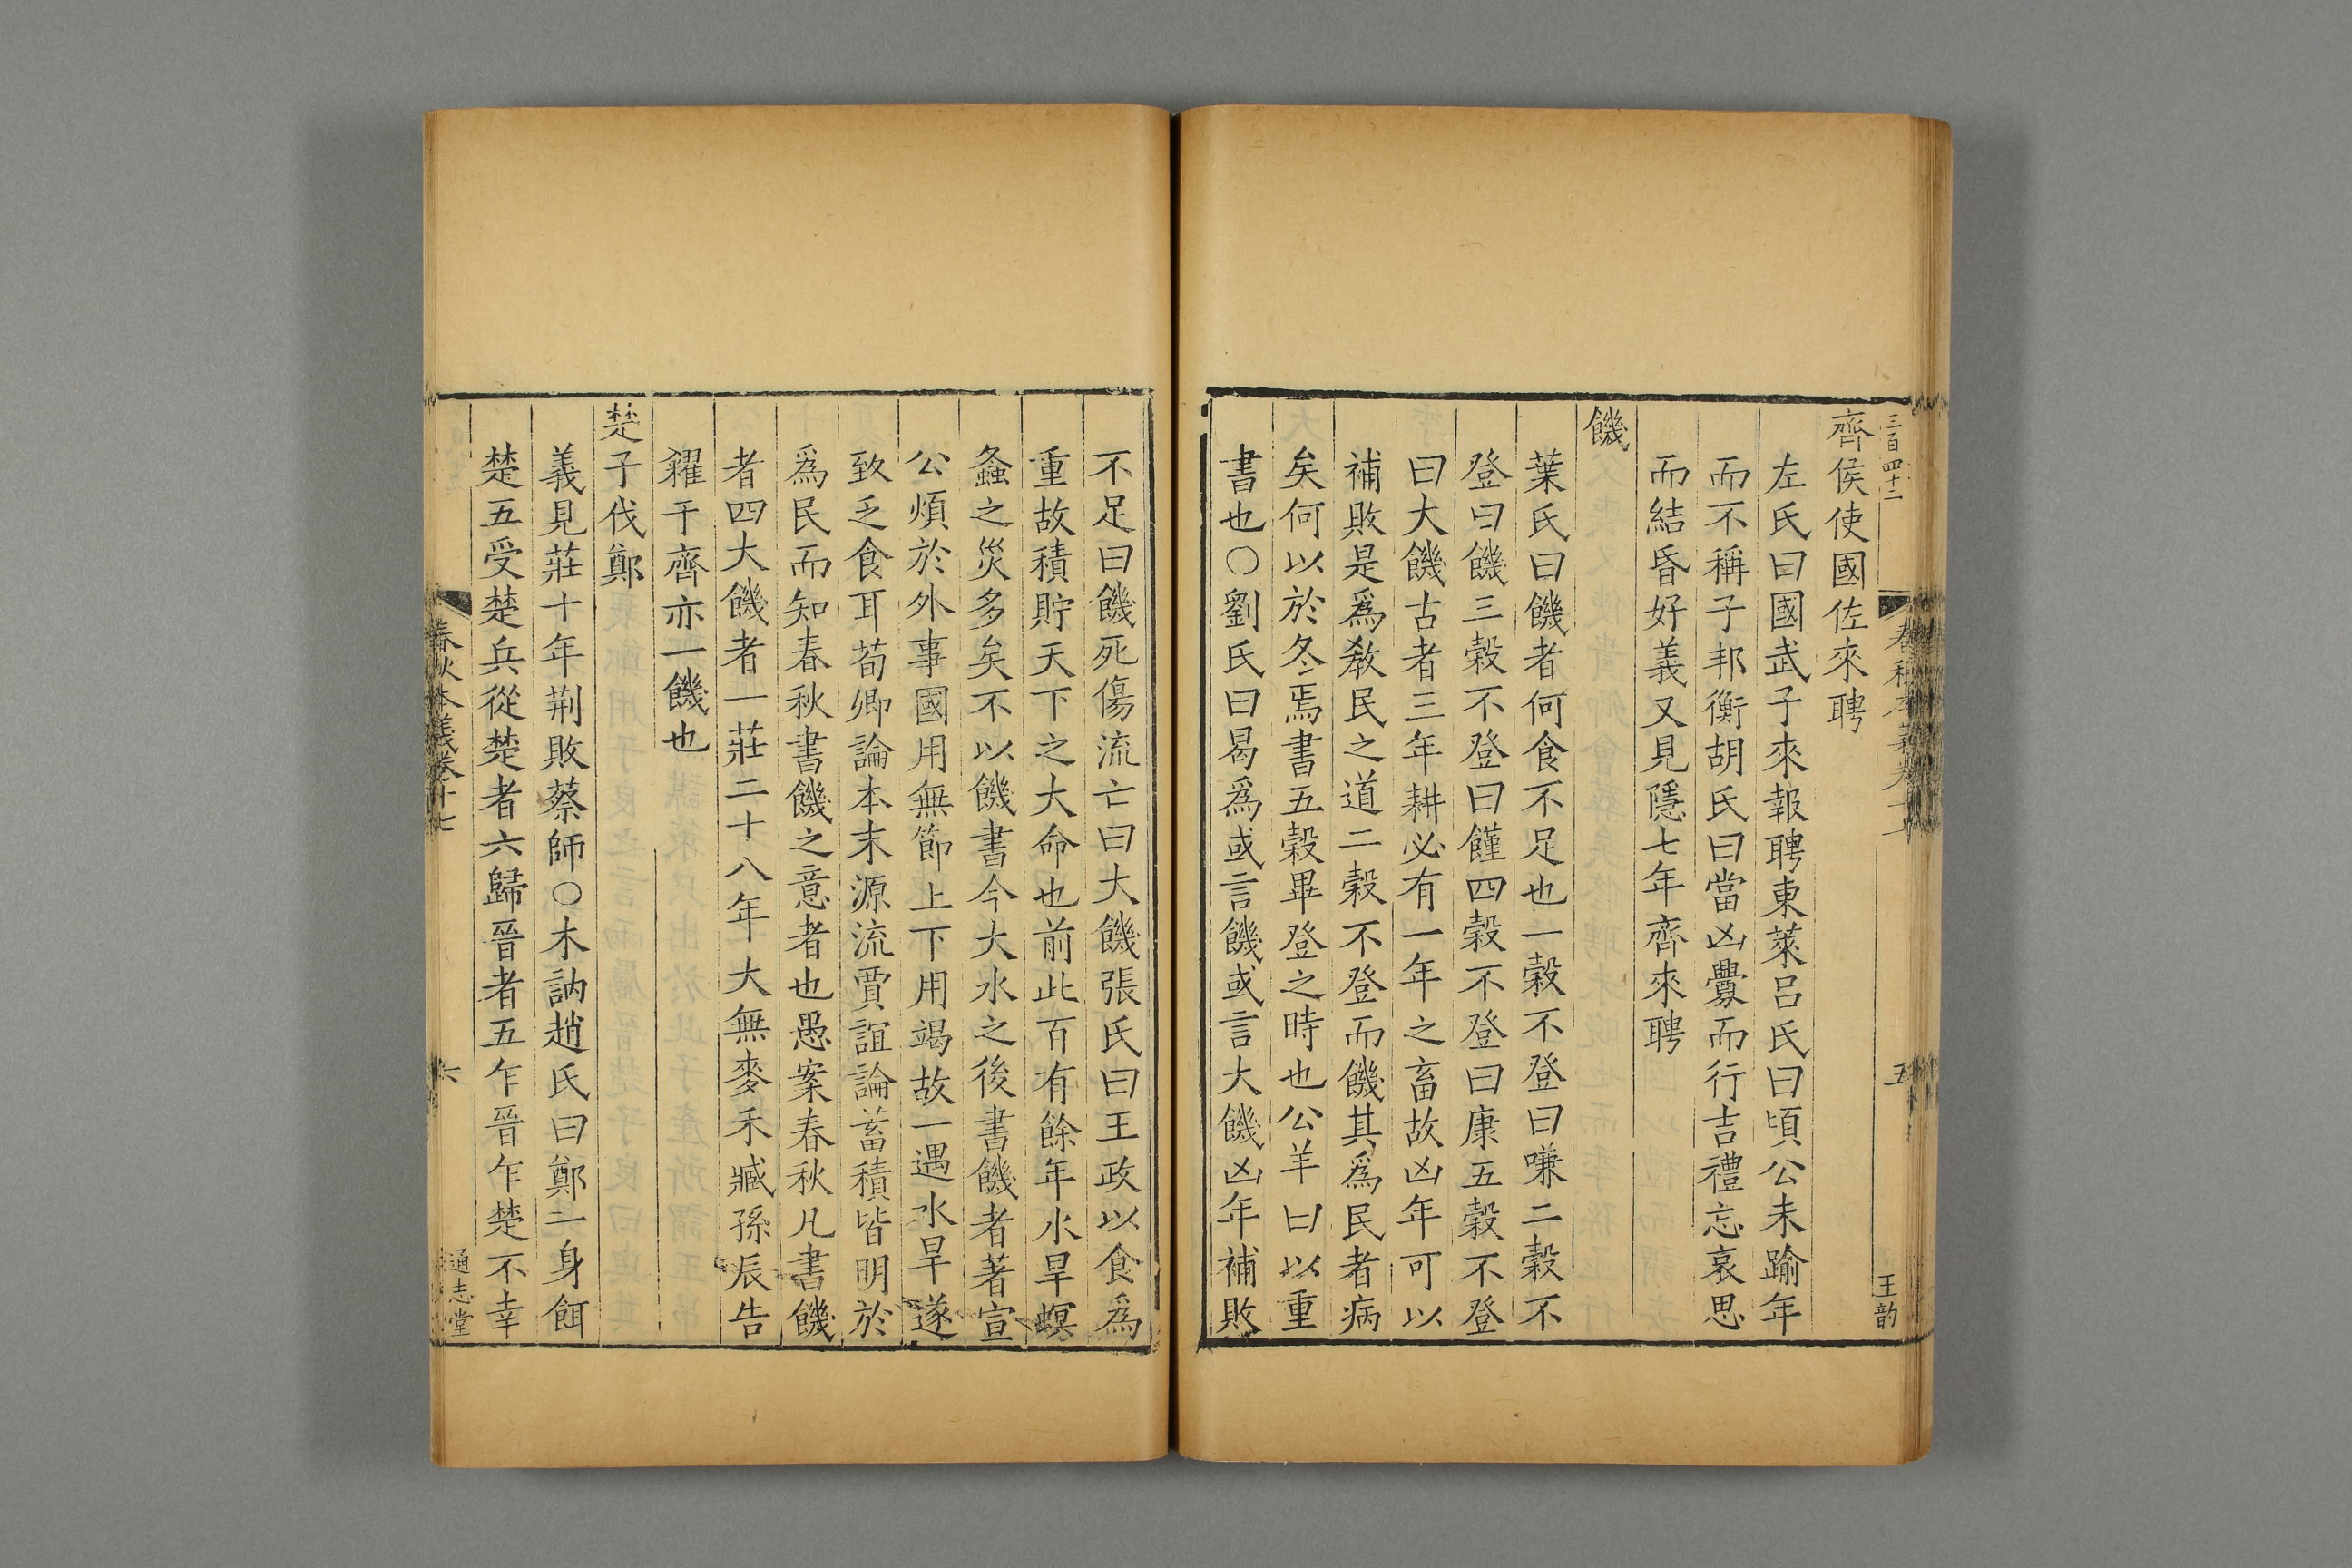 三百四十二
五
王韵
齊侯使國佐來聘
左氏曰國武子來報聘東萊呂氏曰頃公未踰年
而不稱子邦衡胡氏曰當凶釁而行吉禮忘哀思
而結昏好義又見隱七年齊來聘
饑
葉氏曰饑者何食不足也一穀不登曰嗛二穀不
登曰饑三穀不登曰饉四穀不登曰康五穀不登
曰大饑古者三年耕必有一年之畜故凶年可以
補敗是爲教民之道二穀不登而饑其爲民者病
矣何以於冬焉書五穀畢登之時也公羊曰以重
書也○劉氏曰曷爲或言饑或言大饑凶年補敗
不足曰饑死傷流亡曰大饑張氏曰王政以食爲
重故積貯天下之大命也前此百有餘年水旱螟
螽之災多矣不以饑書今大水之後書饑者著宣
公煩於外事國用無節上下用竭故一遇水旱遂
致乏食耳荀卿論本末源流賈誼論蓄積皆明於
爲民而知春秋書饑之意者也愚案春秋凡書饑
者四大饑者一莊二十八年大無麥禾臧孫辰告
糴于齊亦一饑也
楚子伐鄭
義見莊十年荆敗蔡師○木訥趙氏曰鄭一身餌
楚五受楚兵從楚者六歸晉者五乍晉乍楚不幸
春秋本義卷十七
六
通志堂